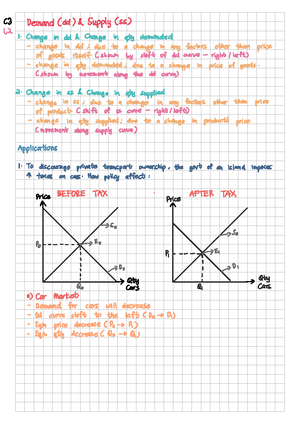 C3
1,2.
Demand (dd) & Supply (ss)
1. Change in dd & Change in qty demanded
- change in dd; due to a change in any factors other than price
of goods itself (shown by shift of dd curve - right/left)
- change in qty demanded; due to a change in price of goods.
(shown by movement along the dd curve)
2. Change in ss & Change in qty supplied
- change in ss; due to a change in any factors other than price
of product (shift of ss curve - right/left)
- change in qty supplied; due to a change in product's price
(movement along supply curve)
Applications
1. To discourage private transport ownership, the govt of an island imposes
↑ taxes on cars. How policy effect:
BEFORE TAX
AFTER TAX
Price
Price
S₀
S₀
P₀
E₀
P₁
E₁
D₀
D₁
Q₀
Qty
Cars
Q₁
Qty
Cars
a) Car Market
- Demand for cars will decrease
- Dd curve shift to the left (D₀ → D₁)
- Eqm price decrease (P₀ → P₁)
- Eqm qty decrease (Q₀ → Q₁)